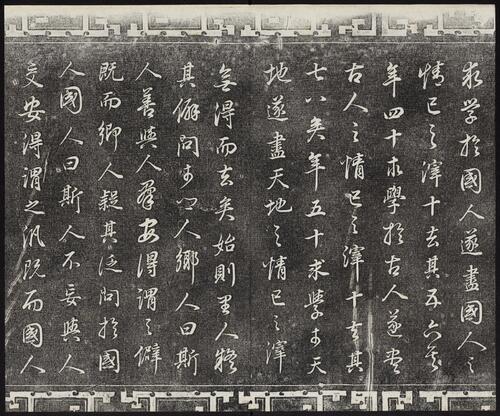 求學於國人遂盡國人之
情已之滓十去其五六矣
年四十求學於古人遂盡
古人之情已之滓十去其
七八矣年五十求學於天
地遂盡天地之情已之滓
無得而去矣始則里人疑
其僻問於鄉人鄉人曰斯
人善與人群安得謂之僻
既而鄉人疑其泛問於國
人國人曰斯人不妄與人
交安得謂之汎既而國人